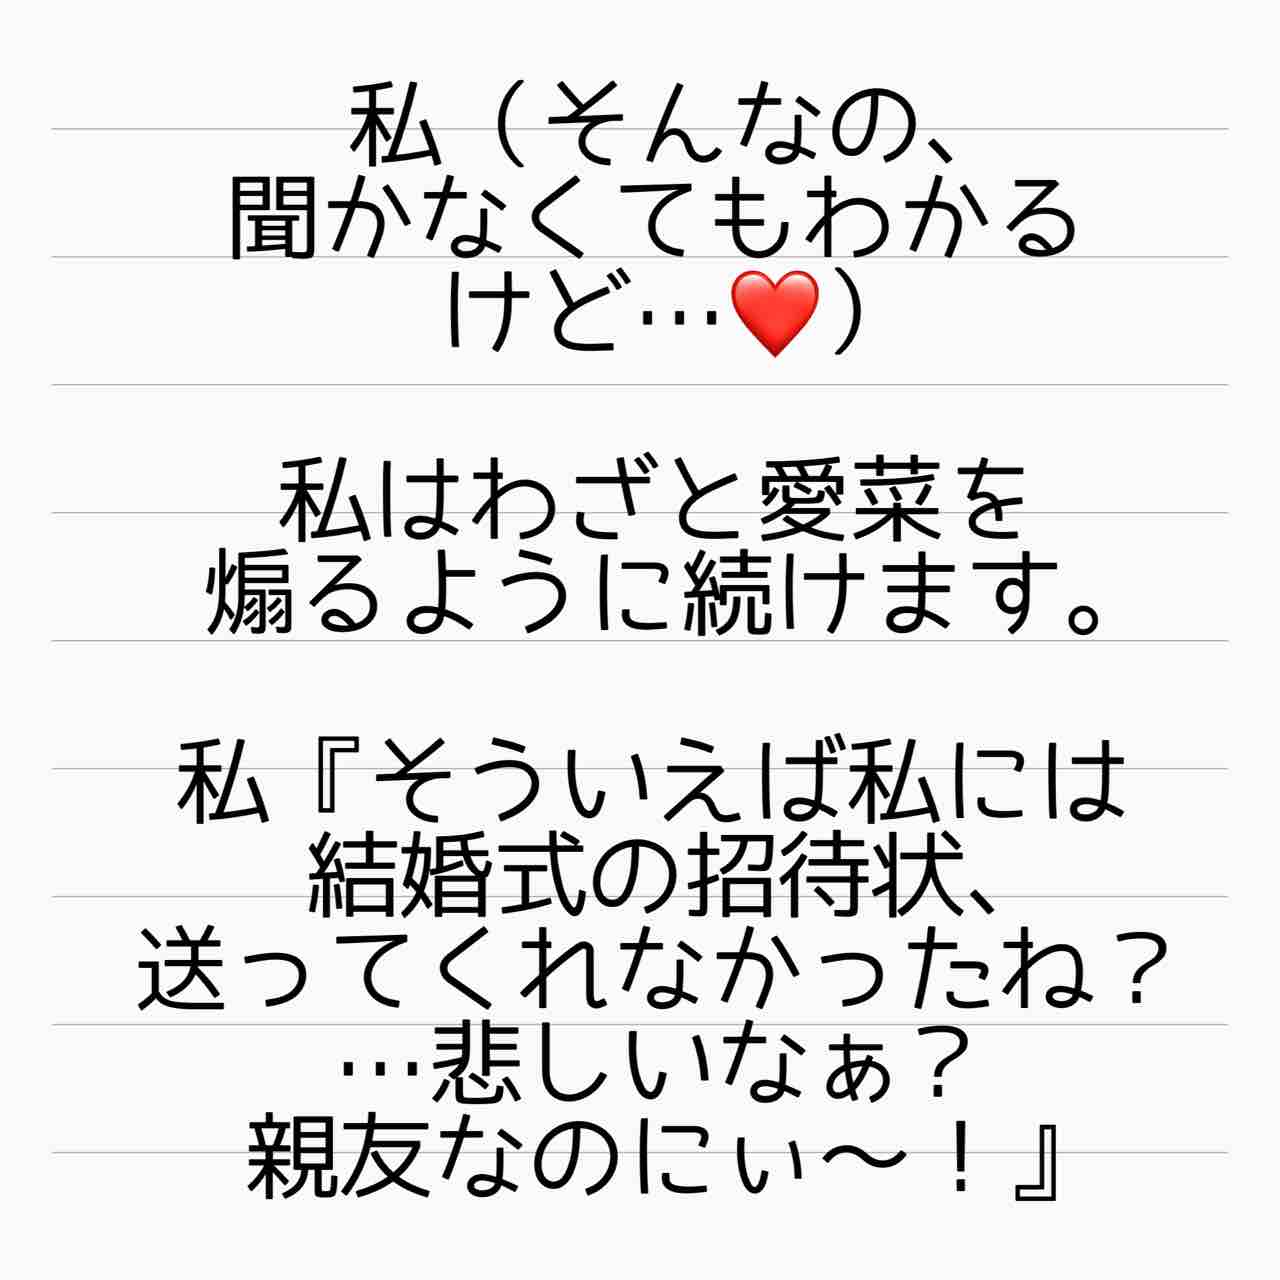 私（そんなの、
聞かなくてもわかる
けど…❤️）
私はわざと愛菜を
煽るように続けます。
私『そういえば私には
結婚式の招待状、
送ってくれなかったね？
…悲しいなぁ？
親友なのにぃ〜！』